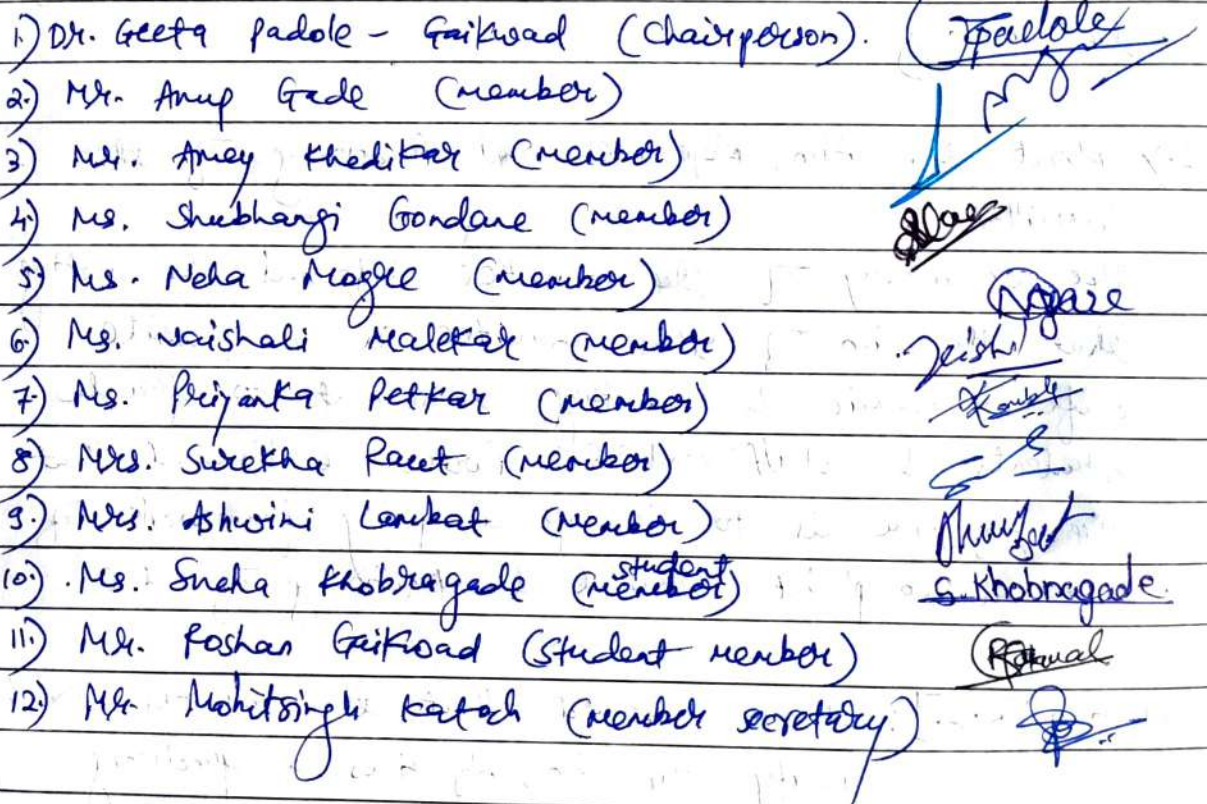 1.) Dr. Geeta Padole - Gaikwad (Chairperson). Gpadole
2.) Mr. Anup Gade (member)
3) Mr. Amey Khedikar (member)
4) Ms. Shubhangi Gondane (member)
5) Ms. Neha Magre (member)
6) Ms. Vaishali Malekar (member)
7.) Ms. Priyanka Petkar (member)
8) Mrs. Surekha Raut (member)
9.) Mrs. Ashwini Lambat (member)
10.) Ms. Sneha Khobragade (student member) S. Khobragade.
11.) Mr. Roshan Gaikwad (Student member)
12.) Mr. Mohitsingh Katoch (member secretary)